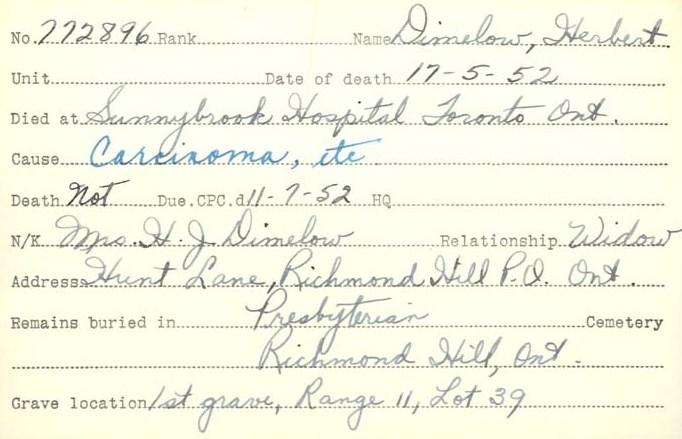 No. 772896 Rank Name Dimelow, Herbert.
Unit Date of death 17-5-52
Died at Sunnybrook Hospital Toronto Ont.
Cause Carcinoma, etc
Death Not Due. CPC.d 11-7-52 HQ
N/K Mrs. H. J Dimelow Relationship Widow
Addresss Hunt Lane, Richmond Hill P.O. Ont.
Remains buried in Presbyterian Cemetery
Richmond Hill, Ont.
Grave location 1st grave, Range 11, Lot 39